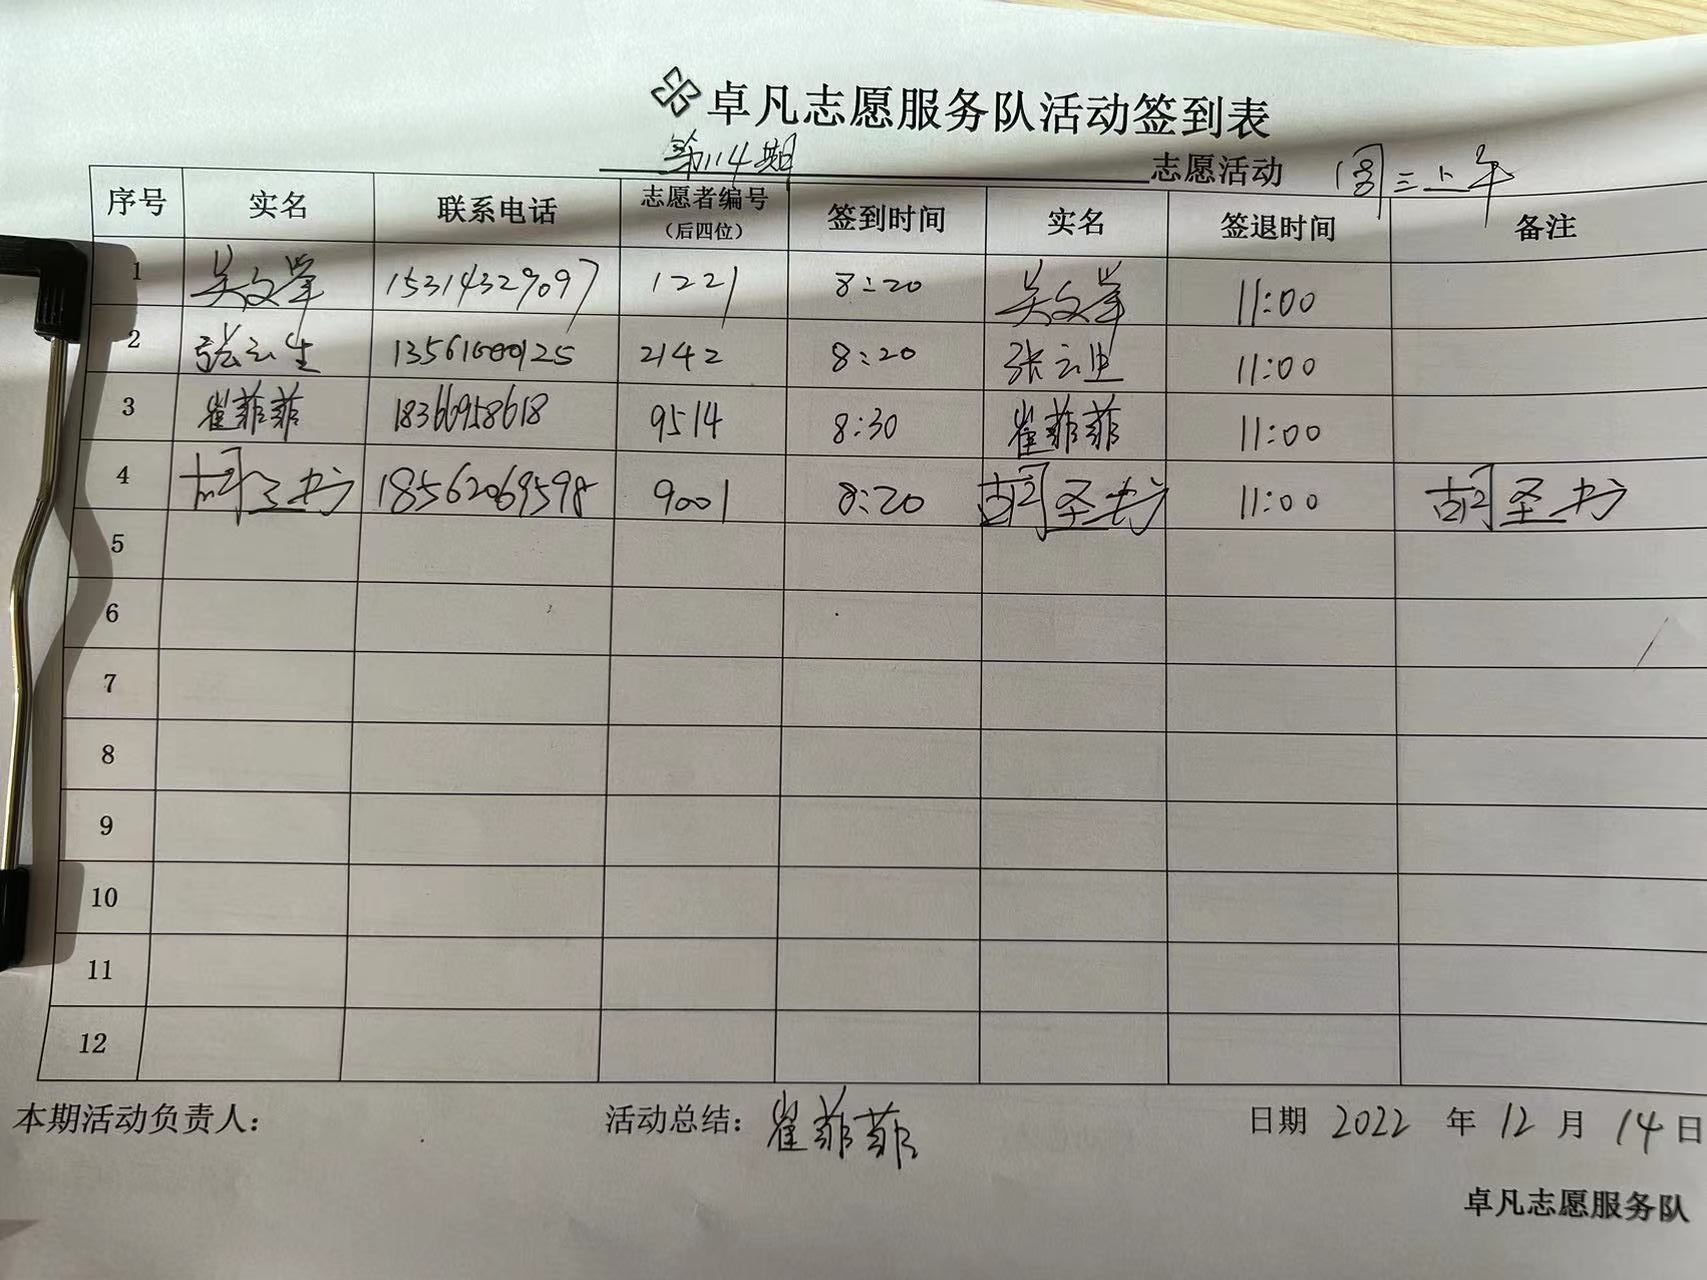 卓凡志愿服务队活动签到表
第114期 志愿活动 周三上午
序号 实名 联系电话 志愿者编号（后四位） 签到时间 实名 签退时间 备注
1 吴文学 15314329097 1221 8:20 吴文学 11:00
2 张云生 13561600125 2142 8:20 张云生 11:00
3 崔菲菲 18366958618 9514 8:30 崔菲菲 11:00
4 胡圣书 18562069598 9001 8:20 胡圣书 11:00 胡圣书
5
6
7
8
9
10
11
12
本期活动负责人： 活动总结：崔菲菲 日期 2022 年 12 月 14 日
卓凡志愿服务队